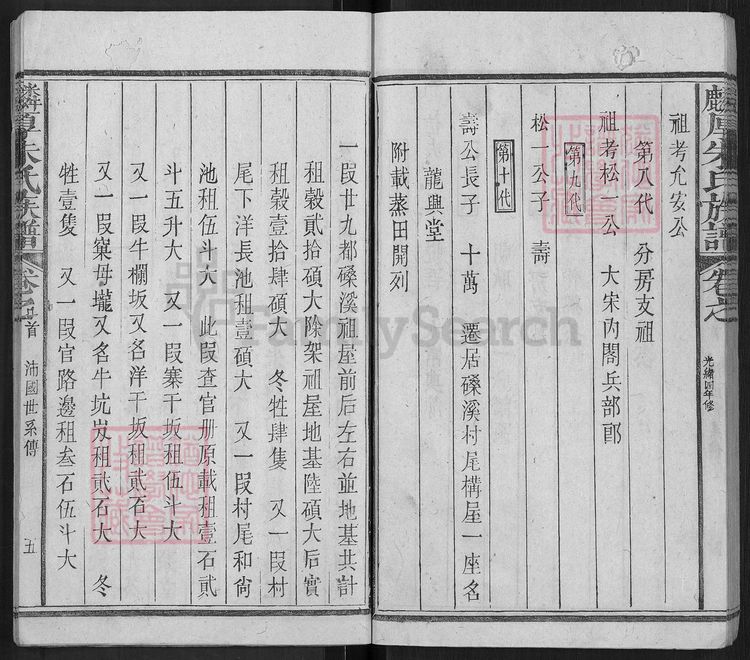 麟厚朱氏族譜 卷之 光緒四年修
祖考允安公
第八代 分房支祖
祖考松一公 大宋内閣兵部郎
第九代
松一公子 壽
第十代
壽公長子 十萬 遷居磜溪村尾構屋一座名
龍興堂
附載蒸田開列
一段廿九都磜溪祖屋前后左右並地基共計
租穀貳拾碩大除架祖屋地基陸碩大后實
租穀壹拾肆碩大 冬牲肆隻 又一段村
尾下洋長池租壹碩大 又一段村尾和尙
池租伍斗大 此段查官册原載租壹石貳
斗五升大 又一段寨干坂租伍斗大
又一段牛欄坂又名洋干坂租貳石大
又一段窠毋壠又名牛坑岌租貳石大 冬
牲壹隻 又一段官路邊租叁石伍斗大
麟厚朱氏族譜 卷之首 沛國世系傳 五
FamilySearch